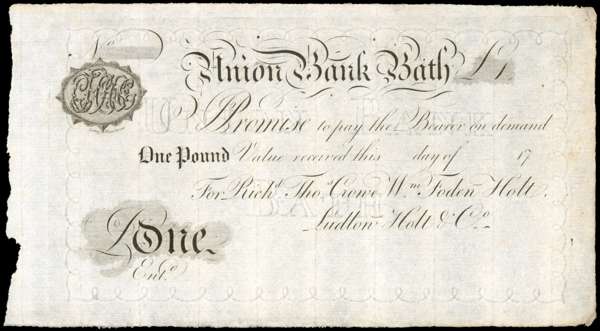 No
Union Bank Bath £1
I Promise to pay the Bearer on demand
One Pound Value received this day of 17
For Richd. Thos. Crowe Wm. Foden Holt.
Ludlow Holt & Co.
£One
Entd.